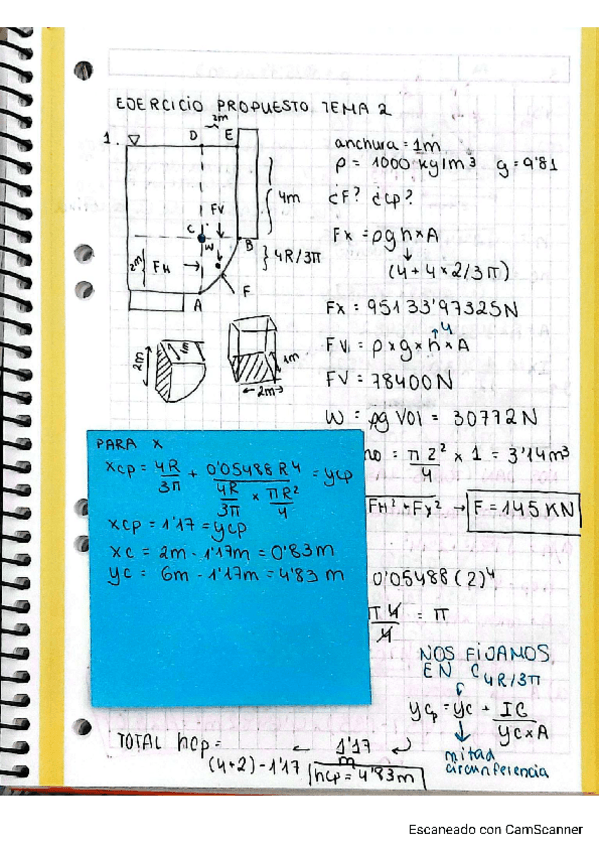 EJERCICIO PROPUESTO TEMA 2
1.
D
2m
E
4m
FV
C
W
B
4R/3π
2m
FH
F
A
anchura = 1m
ρ = 1000 kg/m3 g = 9'81
¿F? ¿cp?
Fx = ρgh×A
(4 + 4×2/3π)
Fx = 95133'97325N
4
FV = ρ×g×h×A
FV = 78400N
2m
1m
1m
2m
W = ρg Vol = 30772N
πZ² × 1 = 3'14m³
4
FH² + Fx² → F = 145 KN
PARA X
Xcp = 4R/3π + 0'05488R4 / (4R/3π × πR²/4) = ycp
xcp = 1'17 = ycp
xc = 2m - 1'17m = 0'83m
yc = 6m - 1'17m = 4'83 m
0'05488(2)4
π4/4 = π
NOS FIJAMOS
EN C 4R/3π
ycp = yc + IG / yc×A
mitad
circunferencia
TOTAL hcp = ← 1'17 m
(4+2) - 1'17 hcp = 4'83m
Escaneado con CamScanner